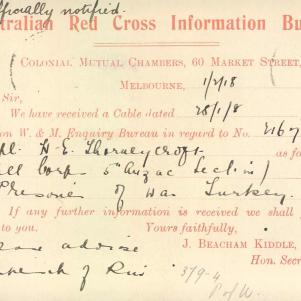 officially notified.
tralian Red Cross Information Bu
COLONIAL MUTUAL CHAMBERS, 60 MARKET STREET,
MELBOURNE, 1/2/18
Sir,
We have received a Cable dated 28/1/8
on W. & M. Enquiry Bureau in regard to No.
pl. H. E. Thorneycroft as fo
ell Corps 5th Anzac Section)
Prisoner of War Turkey.
If any further information is received we shall
out delay. Yours faithfully,
J. BEACHAM KIDDLE,
advise Hon. Secr
of
379-4
P of W.